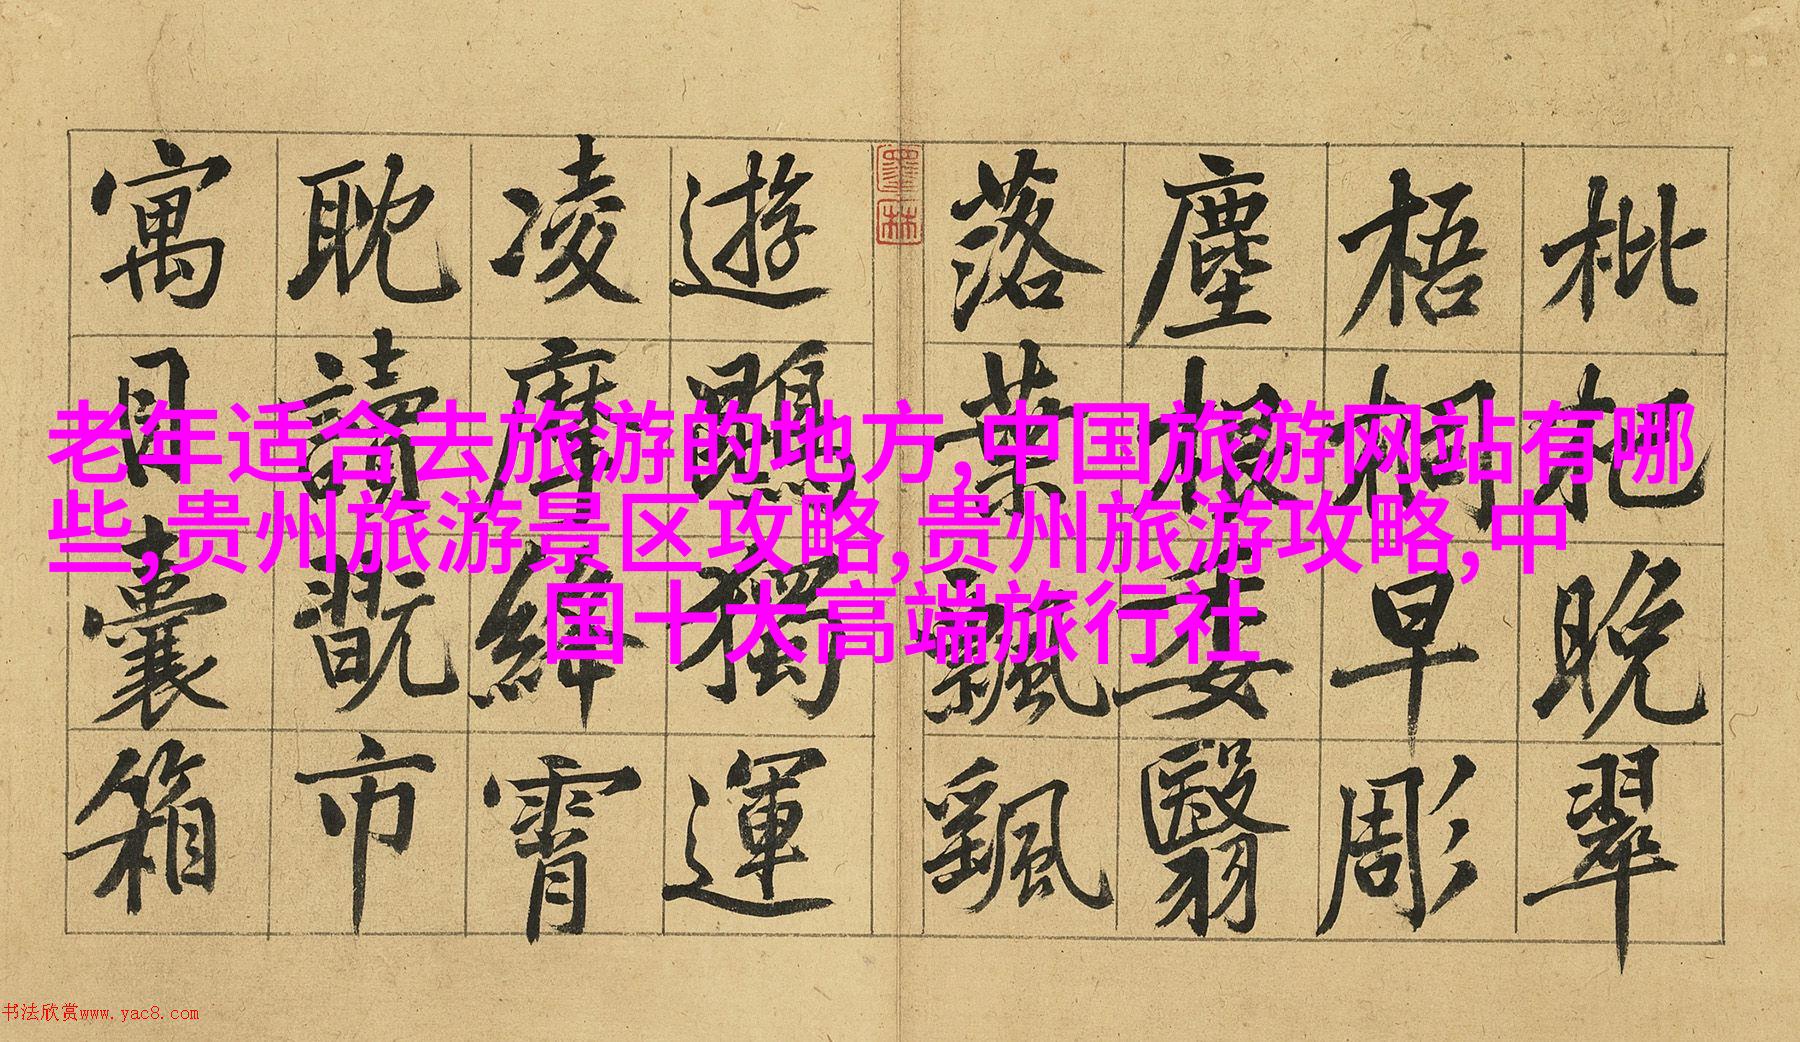 枇杷晚翠
梧桐早彫
塵根委翳
落葉飄颻
墨林
遊鵾獨運
凌摩絳霄
耽讀翫市
寓目囊箱
老年适合去旅游的地方,中国旅游网站有哪
些,贵州旅游景区攻略,贵州旅游攻略,中
国十大高端旅行社
书法欣赏www.yac8.com